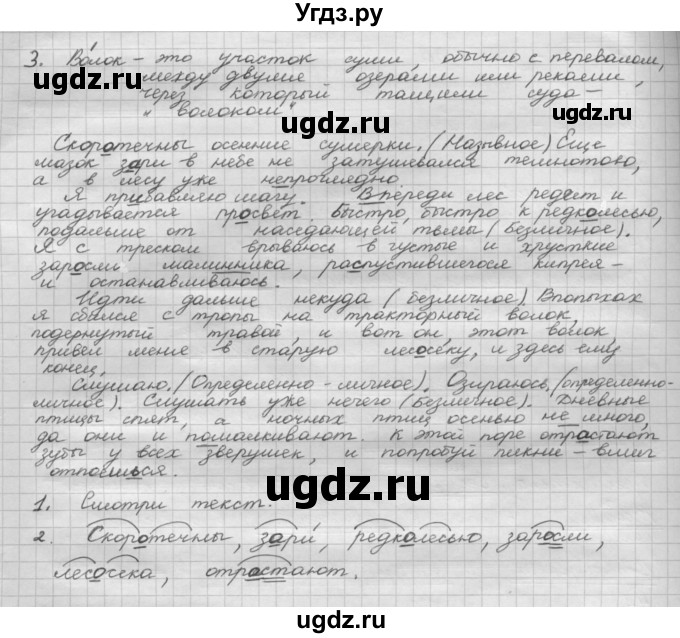 Угдз.ру
3. Волок – это участок суши, обычно с перевалом,
между двумя озерами или реками,
через который тащили суда –
"волоком".
Скоротечны осенние сумерки. (Назывное) Еще
мазок зари в небе не затушевался темнотою,
а в лесу уже непроглядно.
Я прибавляю шагу. Впереди лес редеет и
угадывается просвет. Быстро, быстро к редколесью,
подальше от наседающей тьмы (безличное).
Я с треском врываюсь в густые и хрусткие
заросли малинника, распустившегося кипрея –
и останавливаюсь.
Идти дальше некуда (безличное). Впопыхах
я сбился с тропы на тракторный волок,
подернутый травой, и вот он, этот волок
привел меня в старую лесосеку, и здесь ему
конец.
Слушаю. (Определенно-личное). Озираюсь. (определенно-
личное). Слушать уже нечего (безличное). Дневные
птицы спят, а ночных птиц осенью не много,
да они и помалкивают. К этой поре отрастают
зубы у всех зверушек, и попробуй пикни – вмиг
отпоешься.
1. Смотри текст.
2. Скоротечны, зари, редколесью, заросли,
лесосека, отрастают.
ugdz.ru
ugdz.ru
ugdz.ru
ugdz.ru
ugdz.ru
ugdz.ru
ugdz.ru
ugdz.ru
ugdz.ru
ugdz.ru
ugdz.ru